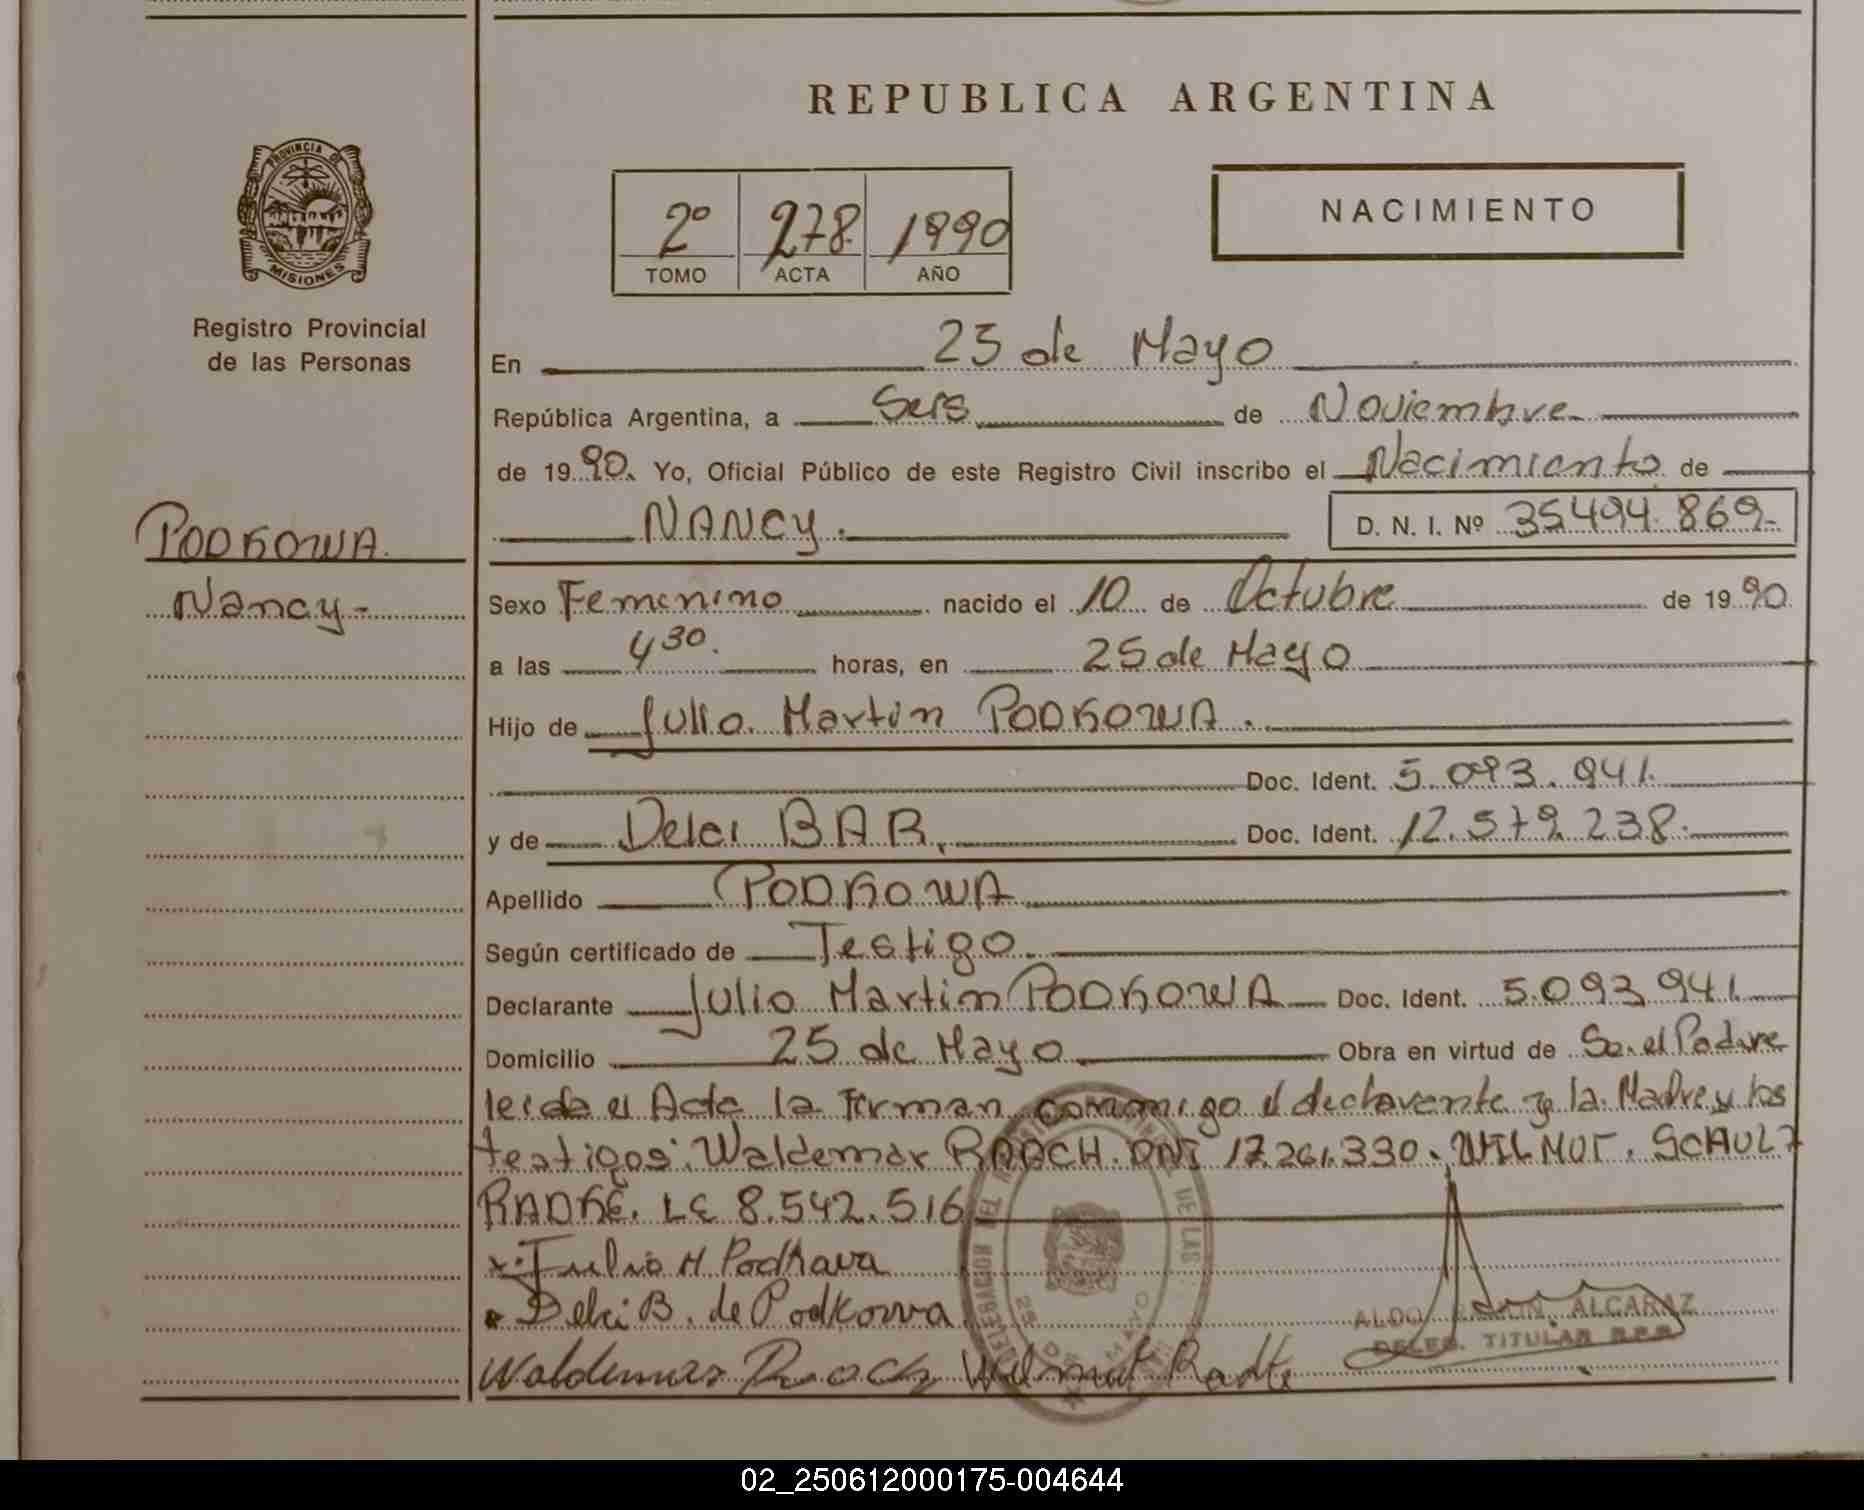 REPUBLICA ARGENTINA
PROVINCIA DE
MISIONES
Registro Provincial
de las Personas
2º 278 1990
TOMO ACTA AÑO
NACIMIENTO
En 25 de Mayo
República Argentina, a Seis de Noviembre
de 1990. Yo, Oficial Público de este Registro Civil inscribo el Nacimiento de
NANCY. D. N. I. Nº 35494.869-
PODKOWA
Nancy-
Sexo Femenino nacido el 10 de Octubre de 1990
a las 4 30. horas, en 25 de Mayo
Hijo de Julio Martin PODKOWA.
Doc. Ident. 5.093.941.
y de Delci BAR, Doc. Ident. 12.579.238.
Apellido PODKOWA
Según certificado de Testigo
Declarante Julio Martin PODKOWA Doc. Ident. 5.093.941.
Domicilio 25 de Mayo Obra en virtud de Se. el Padre
leida el Acta la Firman conmigo el declarente y la Madre y los
testigos: Waldemar RAACH. DNI 17.261.330. WILMUT. SCHULZ
RADKE. LE 8.542.516
x. Julio M Podkava
Delci B. de Podkowa
ALDO RAMON ALCARAZ
DELEG. TITULAR R.P.P.
Waldemar Raach Wilmut Radke
DELEGACION DEL DE LAS
25 DE MAYO
02_250612000175-004644